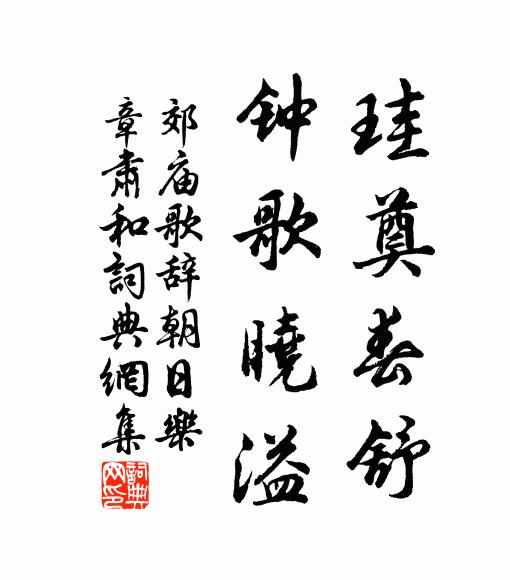 珪奠春舒
钟歌曉溢
郊庙歌辞朝日樂
章肃和詞典網集
詞典
网印